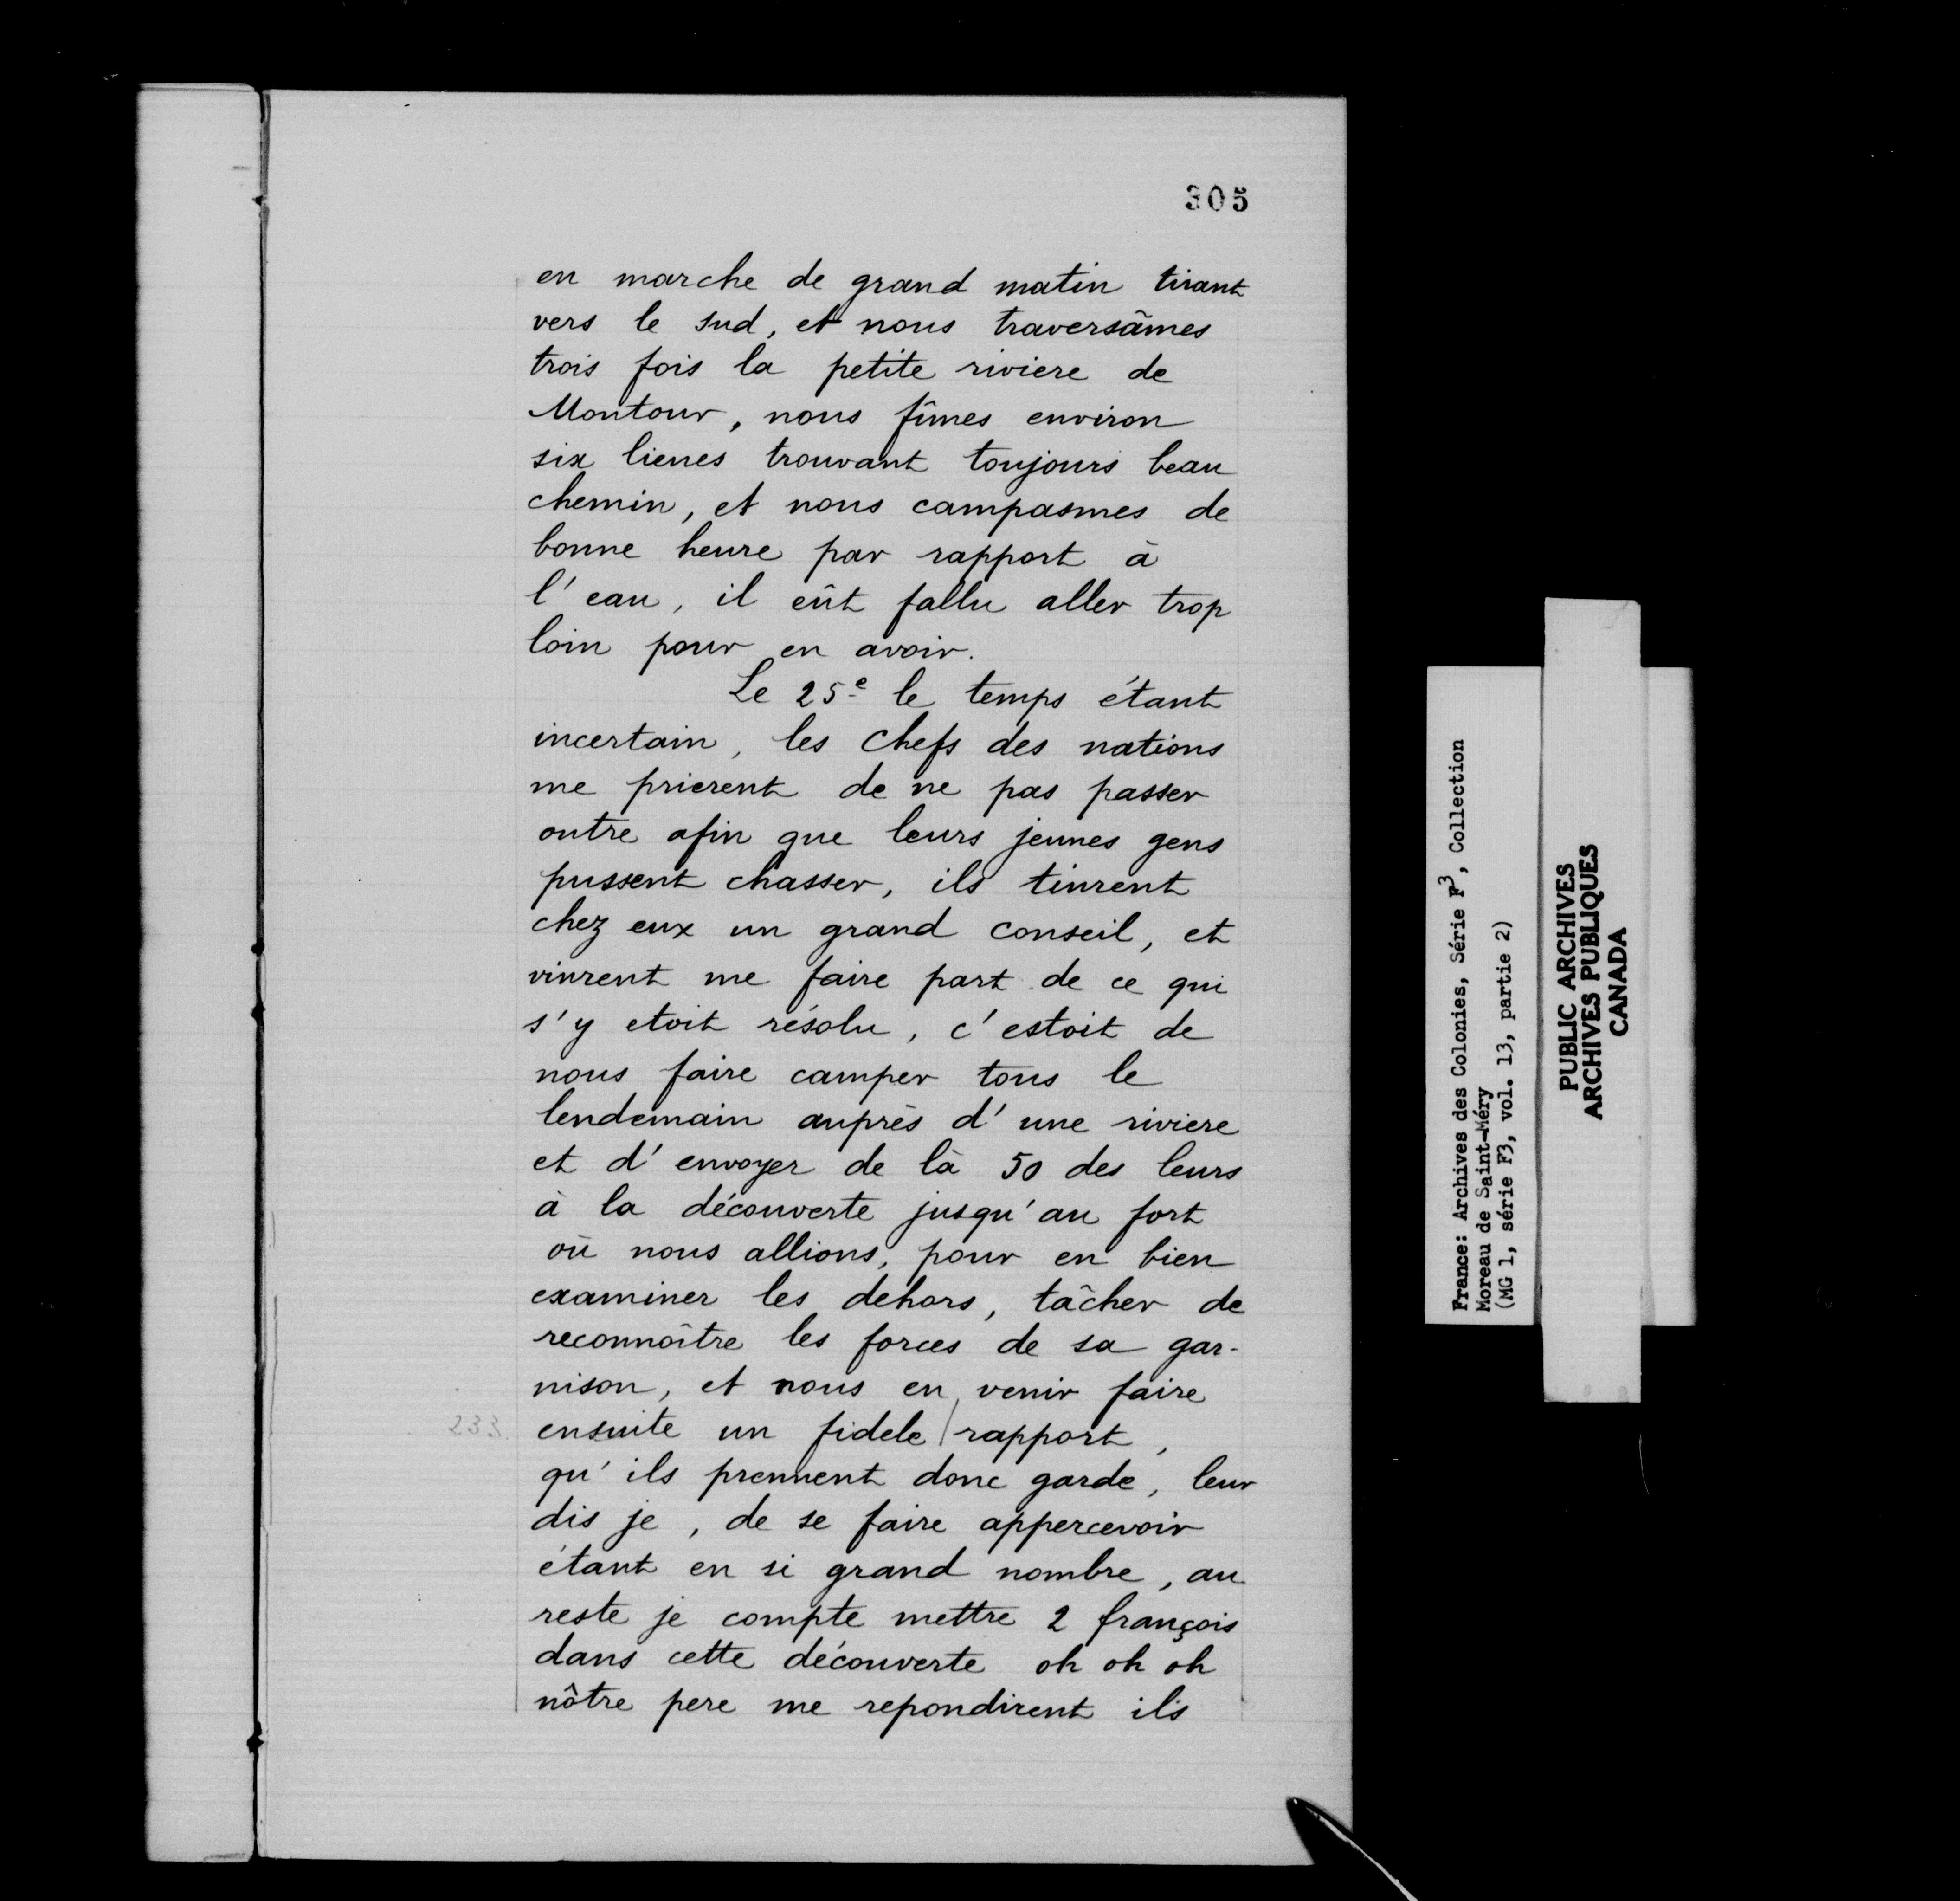 305
en marche de grand matin tirant
vers le sud, et nous traversâmes
trois fois la petite riviere de
Montour, nous fîmes environ
six lieues trouvant toujours beau
chemin, et nous campasmes de
bonne heure par rapport à
l'eau, il eût fallu aller trop
loin pour en avoir.
Le 25e le temps étant
incertain, les chefs des nations
me prierent de ne pas passer
outre afin que leurs jeunes gens
pussent chasser, ils tinrent
chez eux un grand conseil, et
vinrent me faire part de ce qui
s'y etoit résolu, c'estoit de
nous faire camper tous le
lendemain auprès d'une riviere
et d'envoyer de là 50 des leurs
à la découverte jusqu'au fort
où nous allions, pour en bien
examiner les dehors, tâcher de
reconnoître les forces de sa gar-
nison, et nous en venir faire
233. ensuite un fidele / rapport,
qu'ils prennent donc garde, leur
dis je, de se faire appercevoir
étant en si grand nombre, au
reste je compte mettre 2 françois
dans cette découverte oh oh oh
nôtre pere me repondirent ils
France: Archives des Colonies, Série F3, Collection
Moreau de Saint-Méry
(MG 1, série F3, vol. 13, partie 2)
PUBLIC ARCHIVES
ARCHIVES PUBLIQUES
CANADA